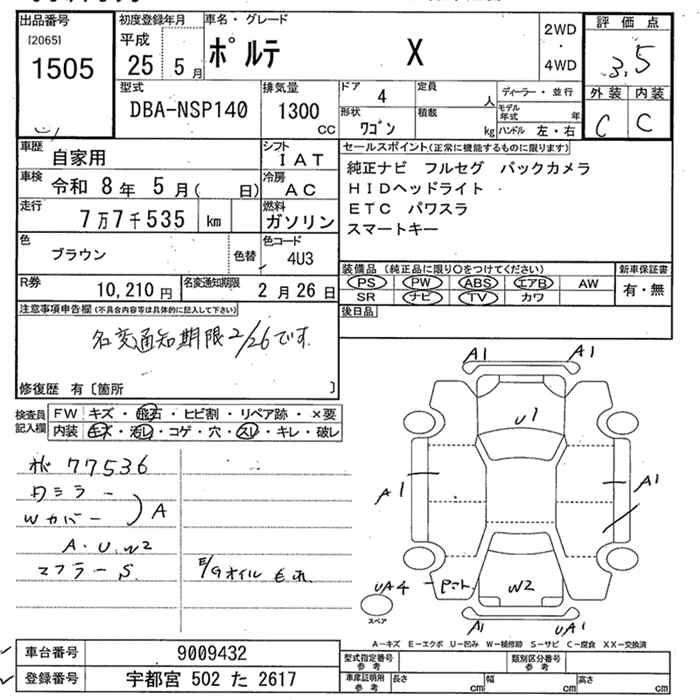 出品番号
[2065]
1505
初度登録年月
平成
25 5月
車名・グレード
ポルテ X
2WD
・
4WD
評価点
3.5
外装 内装
C C
型式
DBA-NSP140
排気量
1300
CC
ドア
4
定員
人
形状
ワゴン
積載
kg
ディーラー・並行
モデル年式 年
ハンドル 左・右
車歴
自家用
シフト
IAT
車検
令和 8年 5月( 日)
冷房
AC
走行
7万7千535 km
燃料
ガソリン
色
ブラウン
色替
色コード
4U3
R券
10,210円
名変通知期限
2月26日
セールスポイント(正常に機能するものに限ります)
純正ナビ フルセグ バックカメラ
HIDヘッドライト
ETC パワスラ
スマートキー
装備品(純正品に限り○をつけてください)
PS PW ABS エアB AW
SR ナビ TV カワ
新車保証書
有・無
後日品
注意事項申告欄(不具合内容等は具体的に記入して下さい)
名変通知期限2/26です
修復歴 有〔箇所 〕
検査員記入欄
FW キズ・飛石・ヒビ割・リペア跡・×要
内装 キズ・汚レ・コゲ・穴・スレ・キレ・破レ
77536
Wカバー
A
A.U.W2
マフラーS
E/Gオイルもれ
A1 A1
U1
A1
A1
UA4
W2
A1 UA1
スペア
A-キズ E-エクボ U-凹み W-補修跡 S-サビ C-腐食 XX-交換済
車台番号
9009432
登録番号
宇都宮 502 た 2617
型式指定番号
参考
類別区分番号
参考
車庫証明用
参考
長さ cm
幅 cm
高さ cm